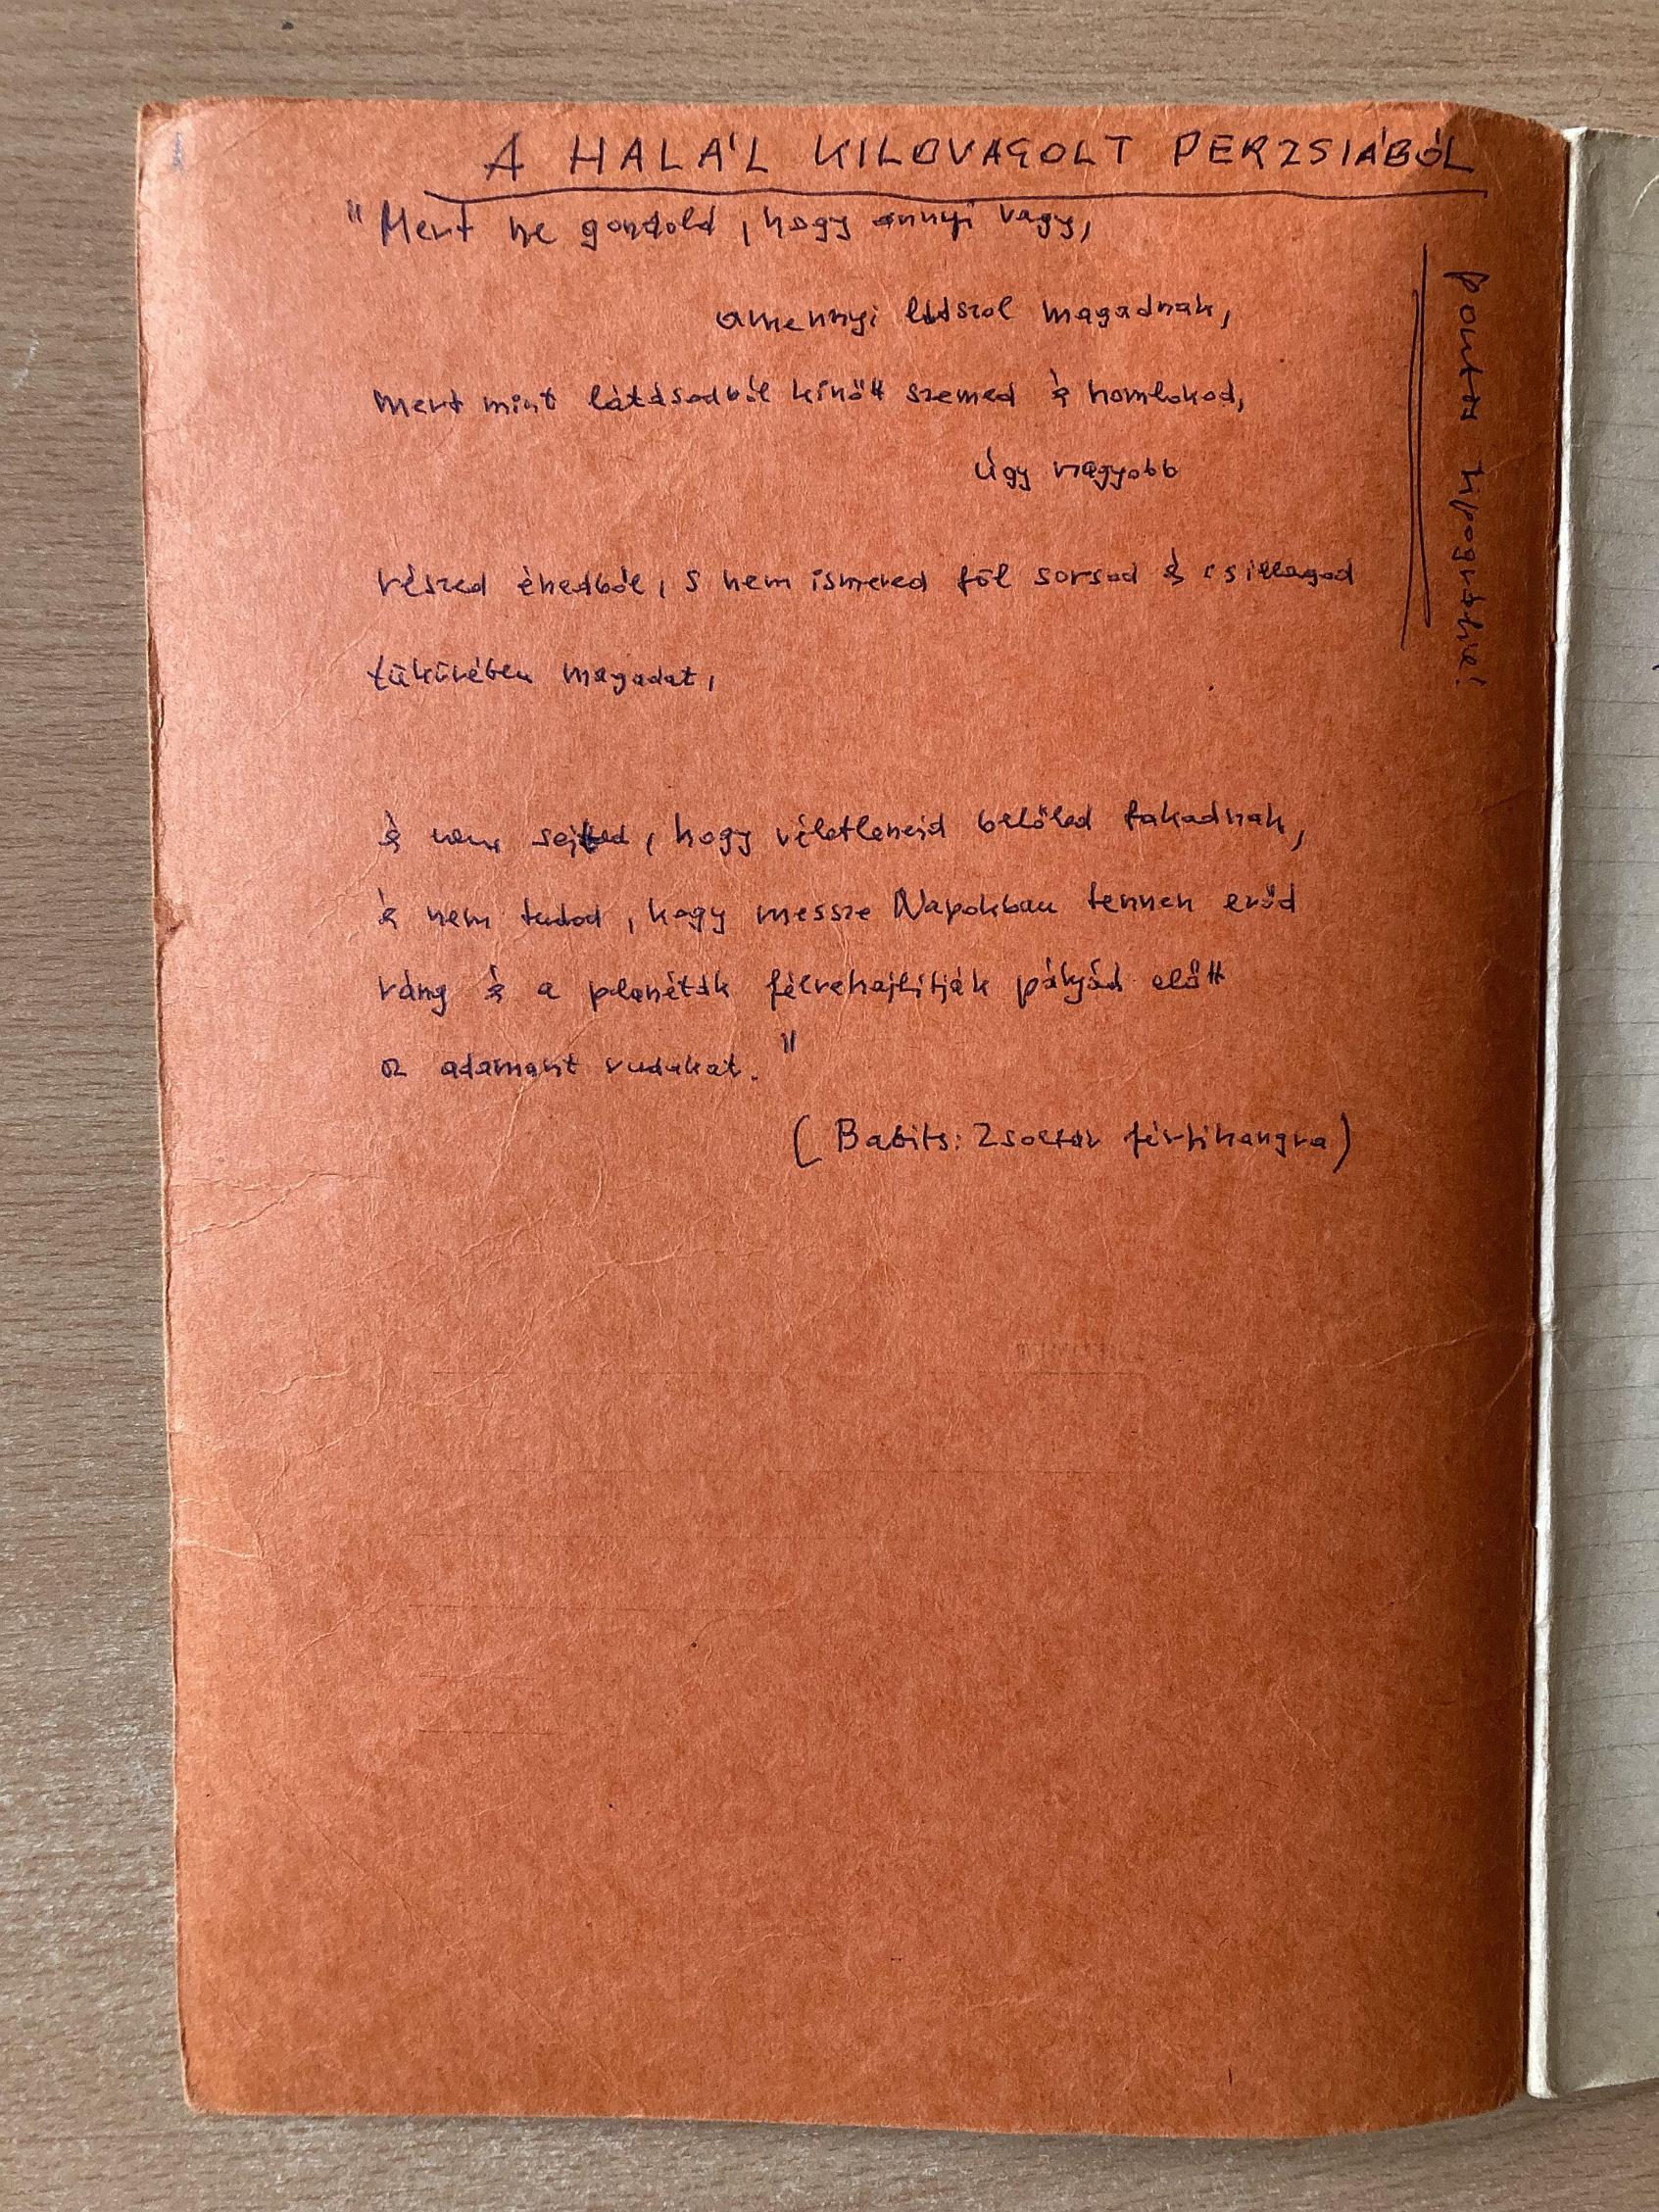 A HALÁL KILOVAGOLT PERZSIÁBÓL
"Mert ne gondold, hogy annyi vagy,
amennyi látszol magadnak,
mert mint látásodból kinőtt szemed és homlokod,
úgy nagyobb
részed énedből, s nem ismered föl sorsod és csillagod
tükörében magadat,
és nem sejted, hogy véletleneid belőled fakadnak,
és nem tudod, hogy messze Napokban tennen erőd
ráng és a planéták félrehajlítják pályád előtt
az adamant rudakat."
(Babits: Zsoltár férfihangra)
pontos tipográfia!